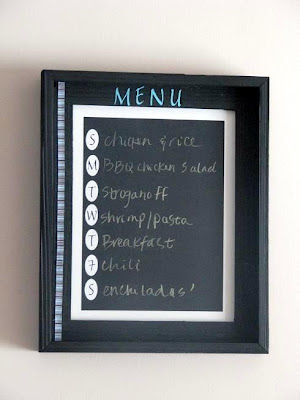 MENU
S chicken & rice
M BBQ chicken Salad
T Stroganoff
W shrimp/pasta
T Breakfast
F chili
S enchiladas'